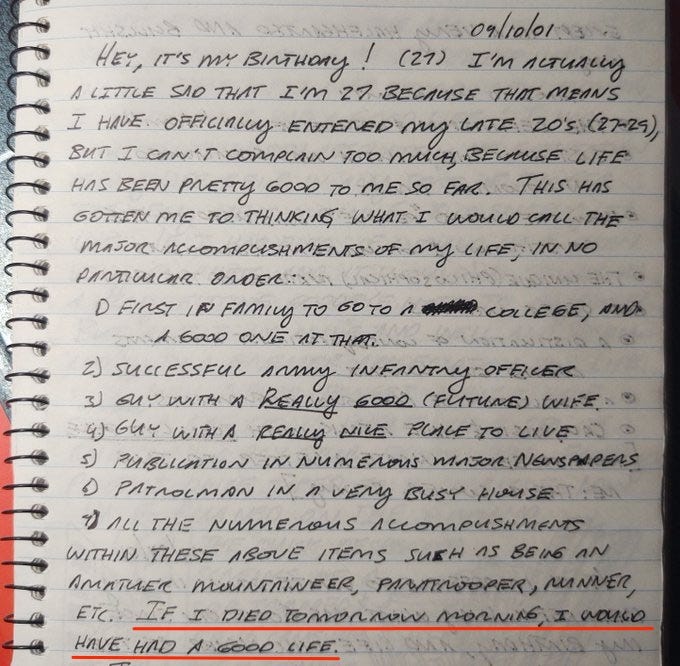 09/10/01
HEY, IT'S MY BIRTHDAY! (27) I'M ACTUALLY
A LITTLE SAD THAT I'M 27 BECAUSE THAT MEANS
I HAVE OFFICIALLY ENTERED MY LATE 20'S (27-29),
BUT I CAN'T COMPLAIN TOO MUCH, BECAUSE LIFE
HAS BEEN PRETTY GOOD TO ME SO FAR. THIS HAS
GOTTEN ME TO THINKING WHAT I WOULD CALL THE
MAJOR ACCOMPLISHMENTS OF MY LIFE, IN NO
PARTICULAR ORDER.
1) FIRST IN FAMILY TO GO TO A COLLEGE, AND
A GOOD ONE AT THAT.
2) SUCCESSFUL ARMY INFANTRY OFFICER
3) GUY WITH A REALLY GOOD (FUTURE) WIFE.
4) GUY WITH A REALLY NICE PLACE TO LIVE
5) PUBLICATION IN NUMEROUS MAJOR NEWSPAPERS
6) PATROLMAN IN A VERY BUSY HOUSE
7) ALL THE NUMEROUS ACCOMPLISHMENTS
WITHIN THESE ABOVE ITEMS SUCH AS BEING AN
AMATUER MOUNTAINEER, PARATROOPER, RUNNER,
ETC. IF I DIED TOMORROW MORNING, I WOULD
HAVE HAD A GOOD LIFE.